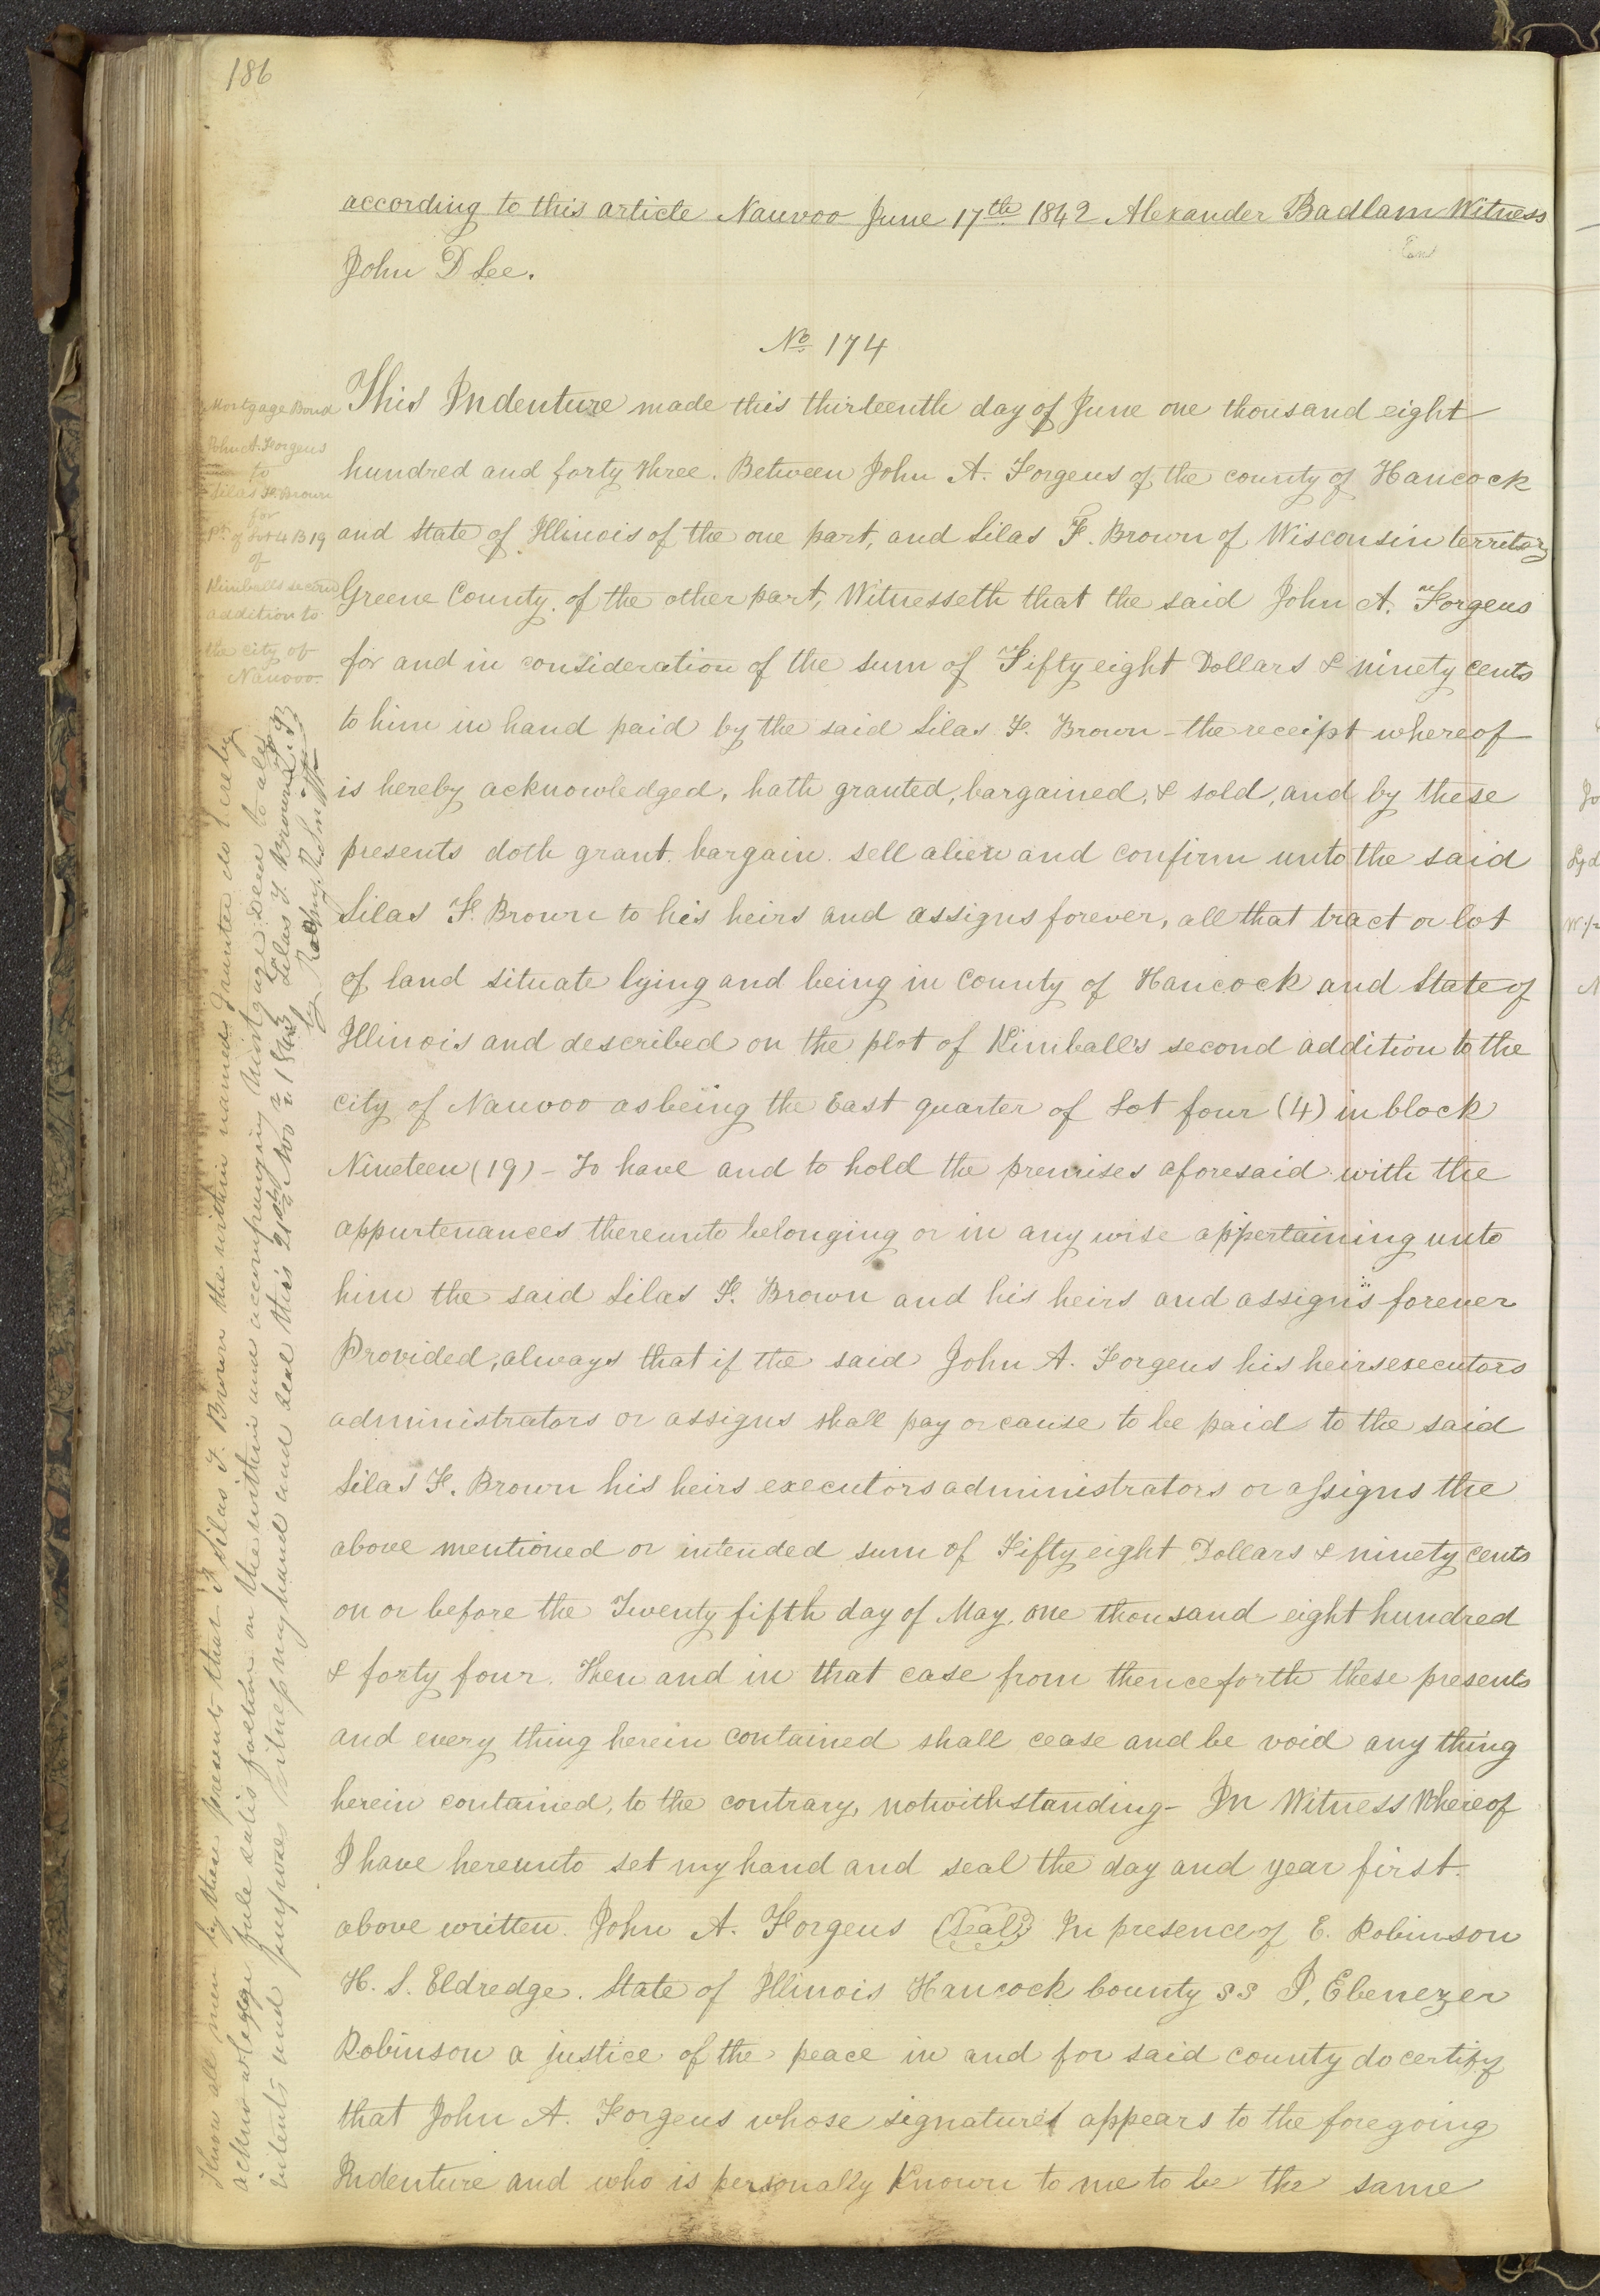 186
according to this article Nauvoo June 17th 1842 Alexander Badlam Witness
John D Lee.
No 174
Mortgage Bond
John A. Forgeus
to
Silas F. Brown
for
Pt. of Lot 4 B 19
of
Kimballs second
addition to
the city of
Nauvoo
This Indenture made this thirteenth day of June one thousand eight
hundred and forty three. Between John A. Forgeus of the county of Hancock
and State of Illinois of the one part, and Silas F. Brown of Wisconsin territory
Greene County. of the other part, Witnesseth that the said John A. Forgeus
for and in consideration of the sum of Fifty eight Dollars & ninety cents
to him in hand paid by the said Silas F. Brown - the receipt whereof
is hereby acknowledged, hath granted, bargained, & sold, and by these
presents doth grant. bargain. sell alien and confirm unto the said
Silas F. Brown to his heirs and assigns forever, all that tract or lot
of land situate lying and being in County of Hancock and State of
Illinois and described on the plot of Kimballs second addition to the
city of Nauvoo as being the East quarter of Lot four (4) in block
Nineteen (19) - To have and to hold the premises aforesaid with the
appurtenances thereunto belonging or in any wise appertaining unto
him the said Silas F. Brown and his heirs and assigns forever
Provided, always that if the said John A. Forgeus his heirs executors
administrators or assigns shall pay or cause to be paid to the said
Silas F. Brown his heirs executors administrators or assigns the
above mentioned or intended sum of Fifty eight Dollars & ninety cents
on or before the Twenty fifth day of May, one thousand eight hundred
& forty four. Then and in that case from thenceforth these presents
and every thing herein contained shall cease and be void any thing
herein contained, to the contrary, notwithstanding - In Witness Whereof
I have hereunto set my hand and seal the day and year first.
above written. John A. Forgeus (Seal) In presence of E. Robinson
H. S. Eldredge. State of Illinois Hancock County ss I, Ebenezer
Robinson a justice of the peace in and for said county do certify
that John A. Forgeus whose signature appears to the foregoing
Indenture and who is personally known to me to be the same
Know all men by these presents that I Silas F. Brown the within named Grantee do hereby
acknowledge full satisfaction on the within and accompanying Mortgage Deed to all
intents and purposes Witness my hand and seal this 21st Nov 1843 Silas F. Brown
by